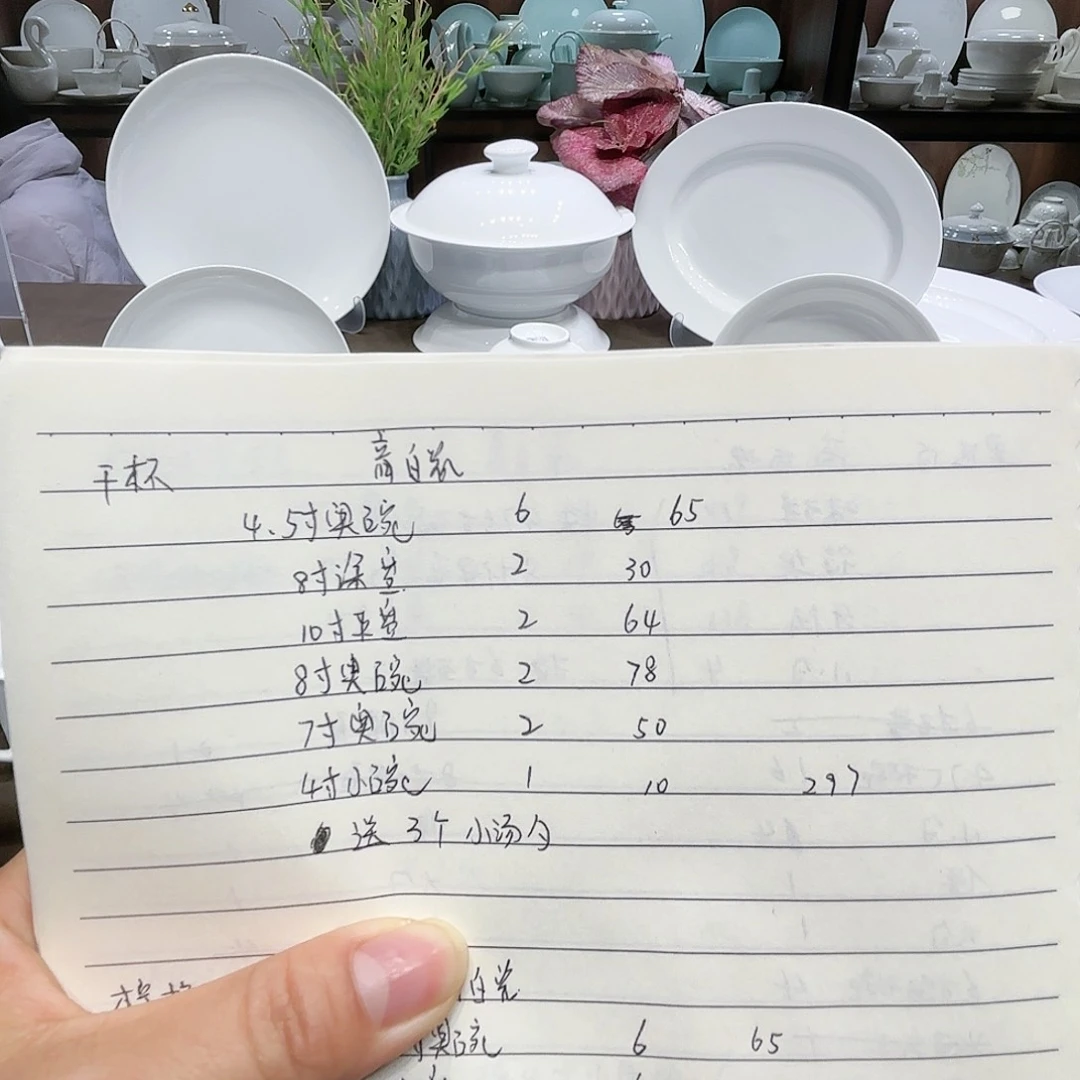 干杯 高白瓷
4.5寸奥碗 6 65
8寸深盘 2 30
10寸平盘 2 64
8寸奥碗 2 78
7寸奥碗 2 50
4寸小碗 1 10 297
送 3个 小汤勺
白瓷
奥碗 6 65